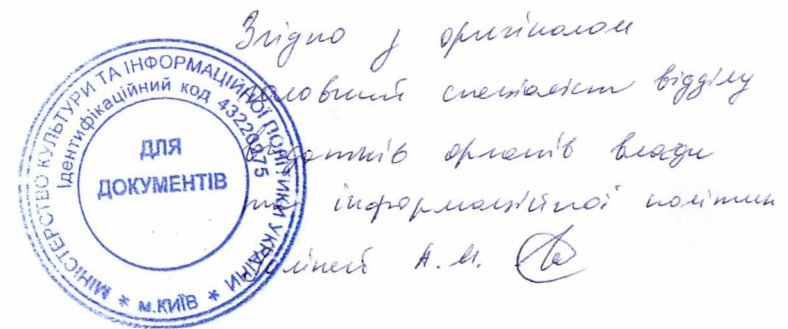 Згідно з оригіналом
головний спеціаліст відділу
видатків органів влади
та інформаційної політики
А. М.
МІНІСТЕРСТВО КУЛЬТУРИ ТА ІНФОРМАЦІЙНОЇ ПОЛІТИКИ УКРАЇНИ * м.КИЇВ *
Ідентифікаційний код 43220275
ДЛЯ
ДОКУМЕНТІВ